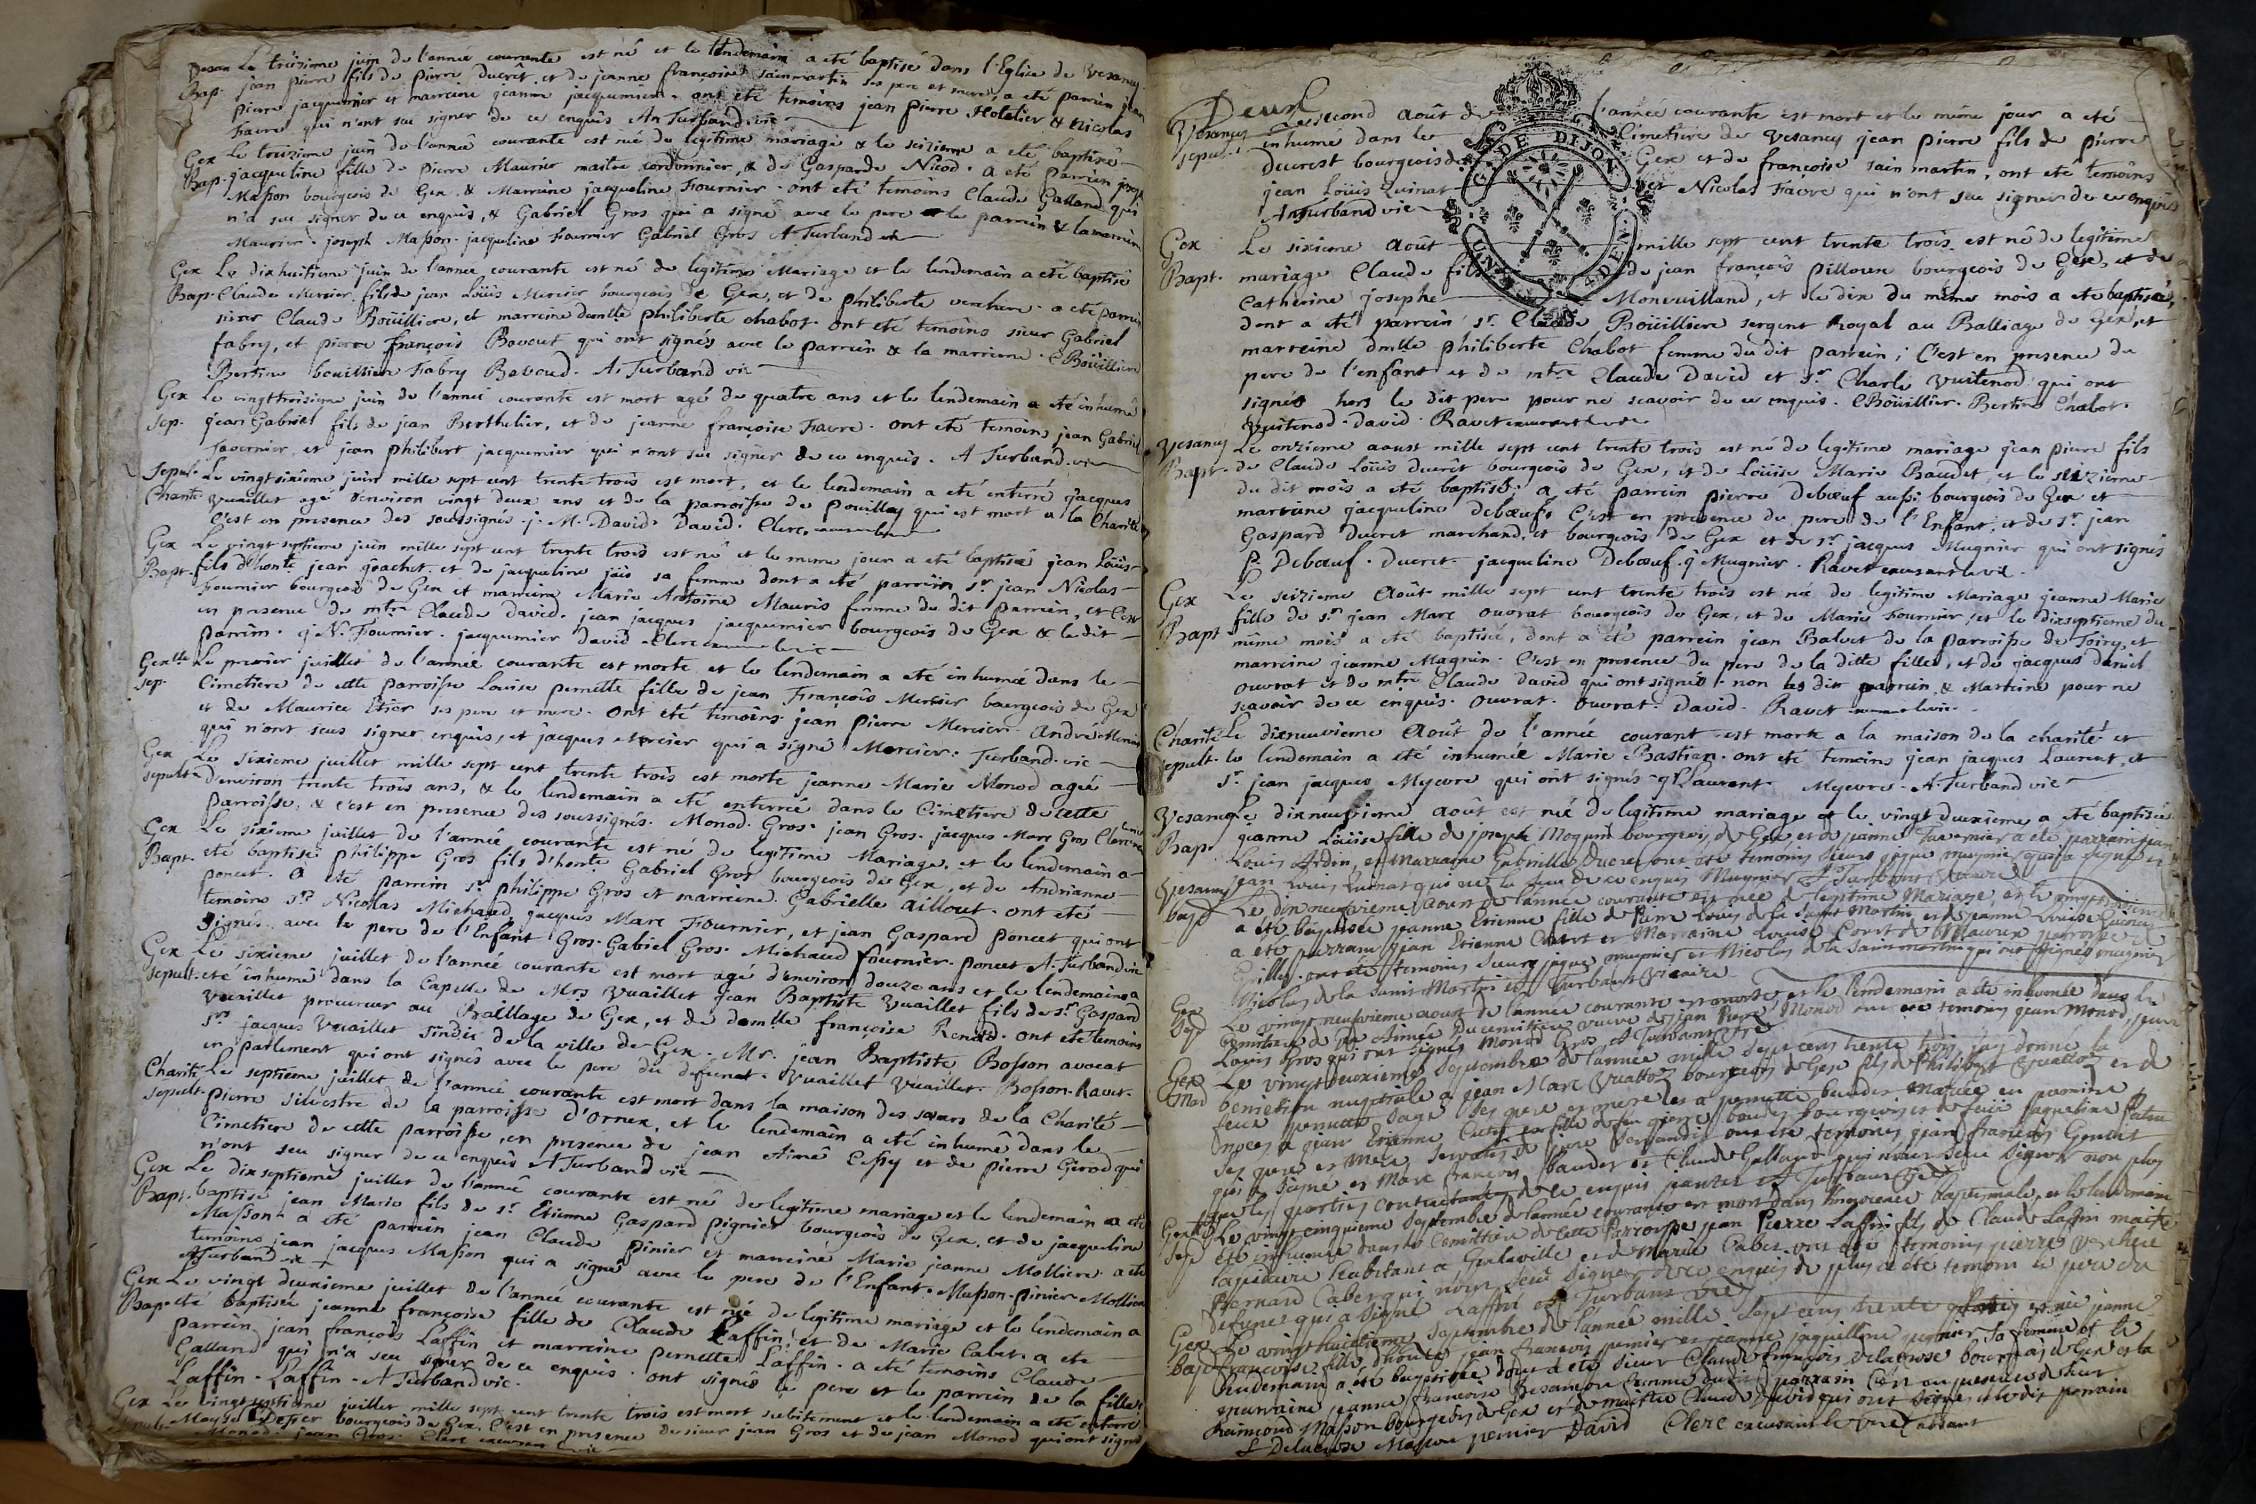 Vesan Le treizieme juin de l'année courante est né et le lendemain a eté baptisé dans l'Eglise de Vesancy
Bap. jean pierre fils de pierre Ducrêt, et de jeanne françoise sainmartin ses pere et mere, a eté parrein jean
pierre jacquemier et marreine jeanne jacquemier. ont eté temoins jean pierre Hotelier & Nicolas
Favre qui n'ont sçu signer de ce enquis An Turband vic
Gex Le treizieme juin de l'année courante est né de legitime mariage & le seizieme a eté baptisé
Bap. jacqueline fille de pierre Maurier maitre cordonnier, & de Gasparde Nicod. a eté parrein joseph
Masson bourgeois de Gex & Marreine jacqueline Fournier. ont eté temoins Claude Galland qui
n'a sçu signer de ce enquis, & Gabriel Gros qui a signé avec le pere et le parrein & la marreine
Maurier. joseph Masson. jacqueline Fournier Gabriel Gros A. Turband vic
Gex Le dixhuitieme juin de l'année courante est né de legitime Mariage et le lendemain a eté baptisé
Bap. Claude Mercier, fils de jean Loüis Mercier bourgeois de Gex, et de philiberte verchere. a eté parrein
sieur Claude Boüilliere, et marreine demlle philiberte chabot. ont eté temoins sieur Gabriel
fabry, et pierre françois Bavout qui ont signés avec le parrein & la marreine. CBoüilliere
Bertine bouillier Fabry Bavoud. A. Turband vic
Gex Le vingttroisieme juin de l'année courante est mort agé de quatre ans et le lendemain a eté inhumé
Sep. jean Gabriel fils de jean Berthelier, et de jeanne françoise Favre. ont eté temoins jean Gabriel
Tavernier, et jean philibert jacquemier qui n'ont sçu signer de ce enquis. A Turband. vic
Sepul. Le vingtsixieme juin mille sept cent trente trois est mort, et le lendemain a eté enterré jacques
Charité Vuaillet agé d'environ vingt deux ans et de la parroisse de pouilley qui est mort a la Charité
C'est en presence des soussignés. j. M. David. David. Clerc
Gex Le vingt septieme juin mille sept cent trente trois est né et le meme jour a eté baptisé jean Loüis
Bapt. fils d'honte jean gachet, et de jacqueline jais sa femme dont a eté parrein sr. jean Nicolas
Fournier bourgeois de Gex et marreine Marie Antoine Mauris femme du dit parrein, et C'est
en presence de mtre Claude David. jean jacques jacquemier bourgeois de Gex & le dit
parrein. j N. Fournier. jacquemier David Clerc
Gex Le premier juillet de l'année courante est morte et le lendemain a eté inhumée dans le
sep. Cimetiere de cette parroisse Louise pernette fille de jean François Mercier bourgeois de Gex
et de Maurice Etier ses pere et mere. ont eté temoins jean pierre Mercier. André Mercier
qui n'ont sceus signer enquis, et jacques Mercier qui a signé Mercier. Turband. vic
Gex Le sixieme juillet mille sept cent trente trois est morte jeanne Marie Monod agée
sepult. d'environ trente trois ans, & le lendemain a eté enterrée dans le Cimetiere de cette
parroisse, & c'est en presence des soussignés. Monod. Gros. jean Gros. jacques Marc Gros Clerc
Gex Le sixieme juillet de l'année courante est né de legitime Mariage, et le lendemain a
Bapt. eté baptisé philippe Gros fils d'honte Gabriel Gros bourgeois de Gex, et de Andrianne
poncet. a eté parrein sr. philippe Gros et marreine Gabrielle aillout. ont eté
temoins srs Nicolas Michaud, jacques Marc Fournier, et jean Gaspard poncet qui ont
signés avec le pere de l'Enfant. Gros. Gabriel Gros. Michaud fournier. poncet A. Turband vic
Gex Le sixieme juillet de l'année courante est mort agé d'environ douze ans et le lendemain a
sepult. eté inhumé dans la Capelle de Mrs Vuaillet jean Baptiste Vuaillet fils de sr. Gaspard
Vuaillet procureur au Bailliage de Gex, et de demlle françoise Renad. ont eté temoins
srs jacques Vuaillet Sindic de la ville de Gex. Mr. jean Baptiste Bosson avocat
en parlement qui ont signés avec le pere du defunct. Vuaillet Vuaillet. Bosson. Ravet.
Charité Le septieme juillet de l'année courante est mort dans la maison des sœurs de la Charité
sepult. pierre silvestre de la parroisse d'Ornex, et le lendemain a eté inhumé dans le
Cimetiere de cette parroisse, en presence de jean Aimé Essy et de pierre Girod qui
n'ont sçu signer de ce enquis A Turband vic
Gex Le dixseptieme juillet de l'année courante est né de legitime mariage et le lendemain a eté
Bapt. baptisé jean Marie fils de sr. Etienne Gaspard pignier bourgeois de Gex, et de jacqueline
Masson. a eté parrein jean Claude pinier et marreine Marie jeanne Molliere. a eté
temoins jean jacques Masson qui a signé avec le pere de l'Enfant. Masson. pinier. Molliere
A Turband vic
Gex Le vingt deuxieme juillet de l'année courante est née de legitime mariage et le lendemain a
Bap. eté baptisée jeanne françoise fille de Claude Laffin, et de Marie Cabet. a eté
parrein jean françois Laffin et marreine pernette Laffin. a eté temoins Claude
Galland qui n'a sçu signer de ce enquis. ont signés le pere et le parrein de la fille.
Laffin. Laffin. A Turband vic.
Gex Le vingtseptieme juillet mille sept cent trente trois est mort subitement et le lendemain a eté enterré
bourgeois de Gex. C'est en presence de sieur jean Gros et de jean Monod qui ont signé
Monod. jean Gros. Clerc
Deux
Vesancy Le second Août de l'année courante est mort et le même jour a eté
sepul. inhumé dans le Cimetiere de Vesancy jean pierre fils de pierre
ducrest bourgeois de Gex et de françoise sain martin, ont eté temoins
jean Loüis Quinat et Nicolas Favre qui n'ont sçu signer de ce enquis
A Turband vic
G. DE DIJON
Gex Le sixieme Août mille sept cent trente trois est né de legitime
Bapt. mariage Claude fils de jean françois pilloux bourgeois de Gex, et de
Catherine josephe Monvuilland, et le dix du même mois a eté baptisé,
dont a eté parrein sr. Claude Boüilliere sergent Royal au Balliage de Gex, et
marreine dmlle philiberte Chabot femme du dit parrein; C'est en presence du
pere de l'enfant et de mtre Claude David et sr. Charle Vuitenod qui ont
signés hors le dit pere pour ne scavoir de ce enquis. CBoüillier. Bertine Chabot.
Vuitenod. David. Ravet
Vesancy Le onzieme aoust mille sept cent trente trois est né de legitime mariage jean pierre fils
Bapt. de Claude Loüis ducrêt bourgeois de Gex, et de Loüise Marie Baudet, et le seizieme
du dit mois a eté baptisé; a eté parrein pierre debœuf aussi bourgeois de Gex et
marreine jacqueline debœuf. C'est en presence du pere de l'Enfant, et de sr. jean
Gaspard Ducret marchand, et bourgeois de Gex et de sr. jacques Mugnier qui ont signés
P. Debœuf. Ducret. jacqueline Debœuf. j Mugnier. Ravet
Gex Le seizieme Août mille sept cent trente trois est née de legitime Mariage jeanne Marie
Bapt fille de sr. jean Marc ouvrat bourgeois de Gex, et de Marie Fournier, et le dixseptieme du
même mois a eté baptisée, dont a eté parrein jean Balvet de la parroisse de Toiry, et
marreine jeanne Magnin. C'est en presence du pere de la ditte fille, et de jacques daniel
ouvrat et de mtre Claude David qui ont signés. non les dits parrein, & Marreine pour ne
scavoir de ce enquis. ouvrat. ouvrat. David. Ravet
Charité Le dixneuvieme Août de l'année courant est morte a la maison de la charité et
sepult. le lendemain a eté inhumée Marie Bastian. ont eté temoins jean jacques Laurent, et
sr. jean jacques Myevre qui ont signés jjLaurent. Myevre. A. Turband vic
Vesancy Le dixneuvieme août est née de legitime mariage et le vingt deuxieme a eté baptisée
Bap. jeanne Loüise fille de joseph bourgeois de Gex, et de jeanne Tavernier a eté parrain jean
Louis et Marraine Gabrielle Ducret ont eté temoins sieurs jaque mugnier qui a signé et
jean Louis Quinat qui ne l'a sceu de ce enquis Mugnier A Turband Vicaire
Vesancy Le dix neufvieme aoust de l'année courante est née de legitime Mariage, et le
bap a eté baptisée jeanne Etienne fille de pierre Louis de la saint Martin, et de jeanne Louise
a eté parrain jean Etienne et Marraine Louise
Gilley. ont eté temoins sieurs jaque mugnier et Nicolas de la saint martin qui ont signés mugnier
Nicolas de la saint Martin et Turband Vicaire
Gex Le vingt neufvieme aoust de l'année courante est morte et le lendemain a eté inhumée dans le
Sep cemitiere Aimée veuve de jean pierre Monod ont eté temoins jean Monod, sieur
Louis Gros qui ont signés Monod Gros A Turband
Gex Le vingt deuxieme septembre de l'année mille sept cens trente trois j'ay donné la
Mar benediction nuptiale a jean Marc bourgeois de Gex fils de Philibert et de
feue pernette ses pere et mere
noces a
ses pere et mere ont eté temoins jean françois
qui a signé et Marc François et Claude Galland qui n'ont sceu signer non plus
que les parties contractantes de ce enquis
Le vingt cinquieme septembre de l'année courante est mort dans l'innocence baptismale, et le lendemain
Sep eté inhumé dans le Cemitiere de cette Parroisse jean Pierre Laffin fils de Claude Laffin maitre
habitant a et de Marie Cabet ont eté temoins pierre
Bernard Cabet qui n'ont sceu signer de ce enquis de plus a eté temoin le pere du
defunct qui a signé Laffin et Turband vic
Gex Le vingt huitieme septembre de l'année mille sept cens trente trois est née jeanne
bap françoise fille d'honte jean françois pernier et jeanne jaqueline sa femme et le
lendemain a eté baptisée dont a eté sieur Claude françois delacrose bourgeois de Gex et la
marraine jeanne françoise femme du dit parrain C'est en presence de sieur
Masson bourgeois de Gex et de maitre Claude David qui ont signé et le dit parrain
Delacrose Masson pernier David Clerc